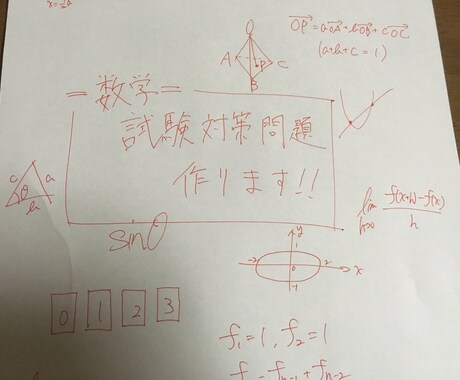 x = 1/2a
OP = aOA + bOB + cOC
(a+b+c = 1)
O
A
P
C
B
=数学=
試験対策問題
作ります!!
c
θ
a
b
sinθ
lim h→0 f(x+h)-f(x) / h
y
1
-2
0
2
x
-1
0 1 2 3
f1 = 1, f2 = 1
fn = fn-1 + fn-2